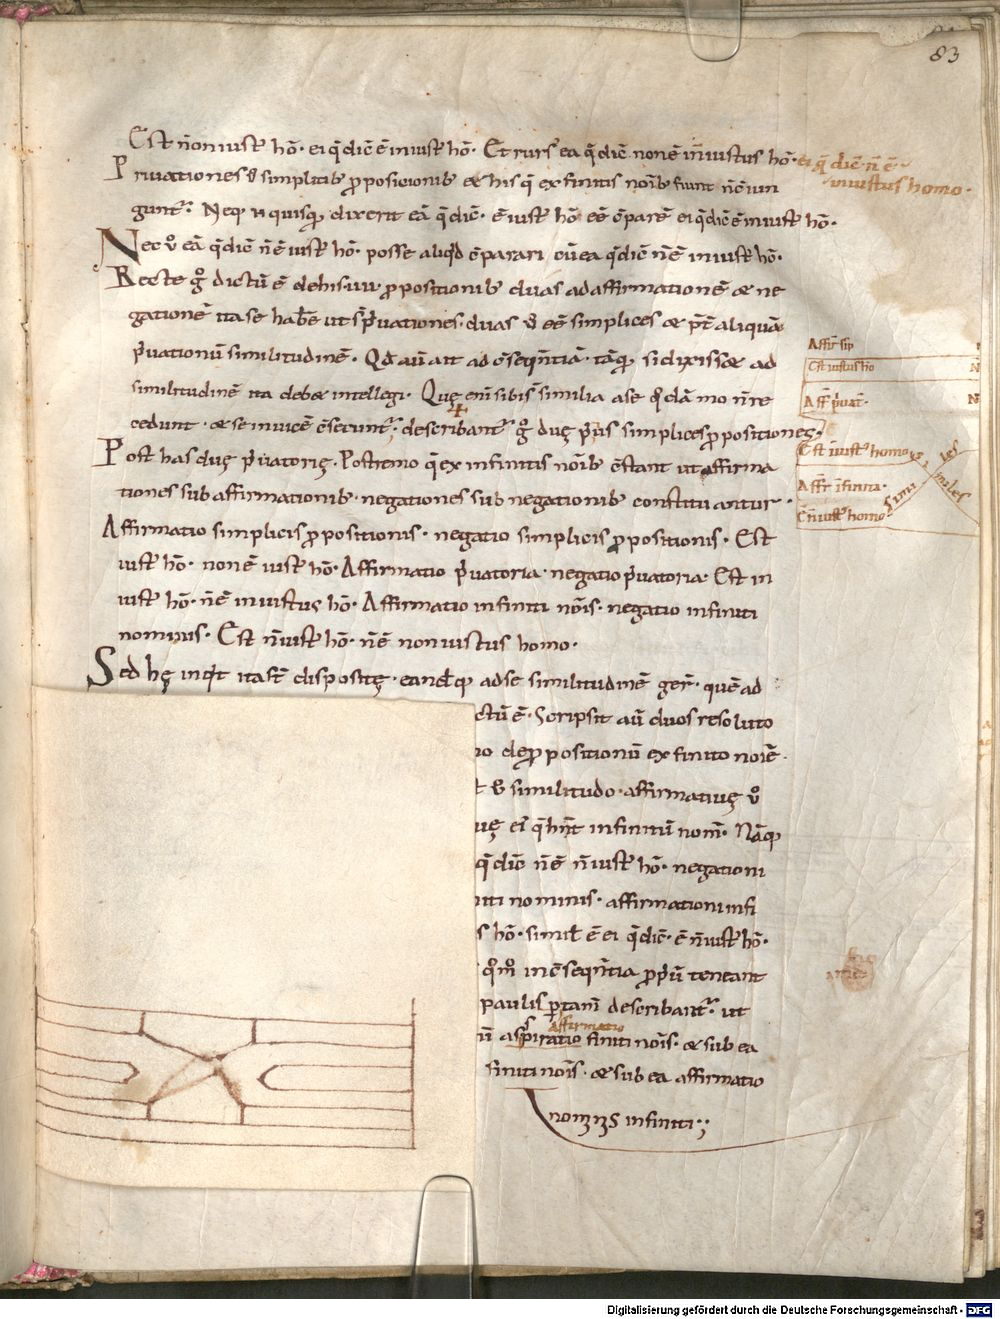 83
Est n̄on iust᷒ hō· ei q̄ dic̄ ē iniust᷒ hō· Et rurs᷒ ea q̄ dic̄ non ē iniustus hō· ei q̄ dic̄ n̄ ē
iniustus homo·
Priuationes v̊ simplicib᷒ ꝓpositionib᷒ & his q̄ ex finitis noīb᷒ fiunt n̄ c̄uin
gunt᷒· Neq᷒ n̄ quisq᷒ dixerit eā q̄ dic̄· ē iust᷒ hō eē c̄parē ei q̄ dic̄ ē iniust᷒ hō·
Nec v̊ eā q̄ dic̄ n̄ ē iust᷒ hō· posse aliqd̄ c̄parari cū ea q̄ dic̄ n̄ ē iniust᷒ hō·
Recte g̊ dictū ē de his iiii ꝓpositionib᷒ duas ad affirmationē & ne
gationē ita se habēe ut s̄ p̄uationes· duas v̊ eē simplices & p̄t̄ aliquā
p̄uationū similitudinē· Qd̄ aū ait ad c̄seq̄ntiā· tāq᷒ si dixiss& ad
similitudinē ita deb& intellegi· Quę eni sibi s̄ similia a se q̊dā mo n̄ re
cedunt· & se inuicē c̄secunt᷒· describant᷒ g̊ duę p̄us simplices ꝓpositiones·
Post has duę p̄uatorię· Postremo q̄ ex infinitis noīb᷒ c̄stant ut affirma
tiones sub affirmationib᷒· negationes sub negationib᷒ constituantur·
Affirmatio simplicis ꝓpositionis· negatio simplicis ꝓpositionis· Est
iust᷒ hō· non ē iust᷒ hō· Affirmatio p̄uatoria· negatio p̄uatoria· Est in
iust᷒ hō· n̄ ē iniustus hō· Affirmatio infiniti noīs· negatio infiniti
nominis· Est n̄ iust᷒ hō· n̄ ē non iustus homo·
Sed hę inq̄t ita st̄ dispositę· eandēq᷒ ad se similitudinē ger̄t· quē ad
ctū ē· Scripsit aū duos resoluto
no de ꝓpositionū ex finito noīe·
t v̊ similitudo· affirmatiuę v̊
uę ei q̄ hn̄t infinitū nom̄· Nāq᷒
q̄ dic̄ n̄ ē n̄ iust᷒ hō· negationi
iti nominis· affirmationi infi
s hō· simil̄ ē ei q̄ dic̄· ē n̄ iust᷒ hō·
q̊m̊ in c̄seq̄ntia ꝓp̄ū teneant
paulisꝑ tam̄ describant᷒· ut
affirmatio
ū aspiratio finiti noīs· & sub ea
finiti noīs· & sub ea affirmatio
nominis infiniti·;
Affir̄ sip
Est iustus ho
Aff p̄uat̄·
Est iiust᷒ homo
Affir̄ īfinita·
Ē n̄ iust᷒ homo
simi les
simi miles
Digitalisierung gefördert durch die Deutsche Forschungsgemeinschaft - DFG